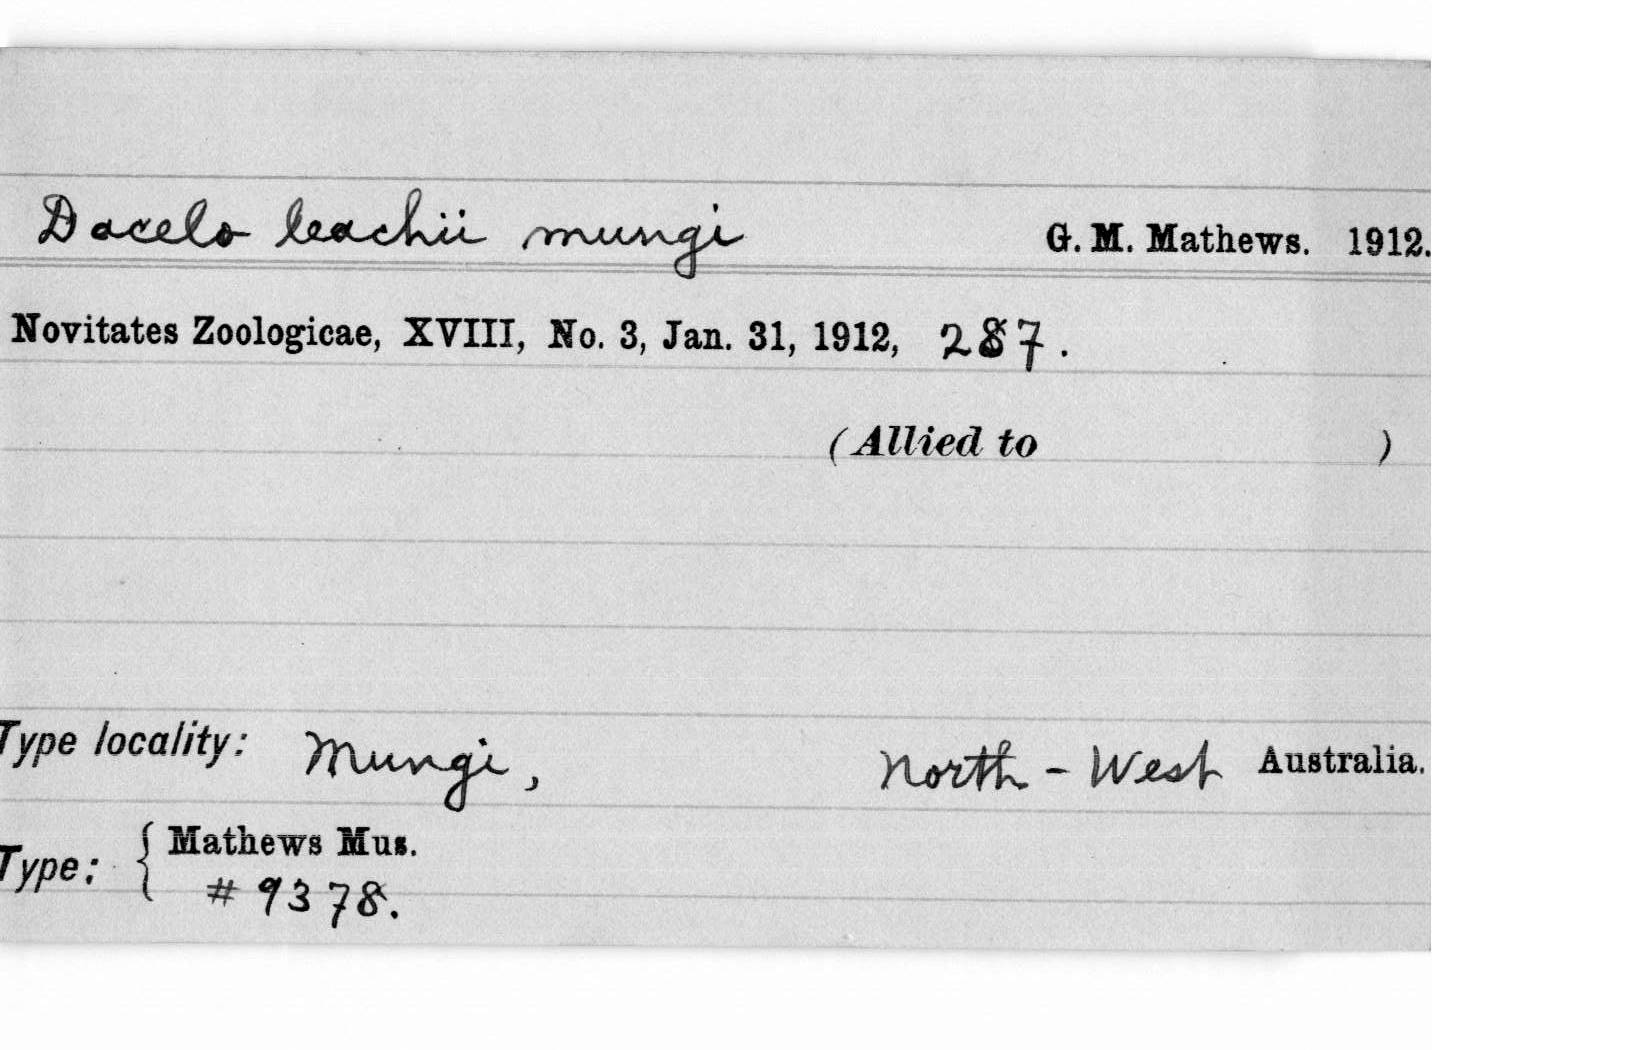 Dacelo leachii mungi G. M. Mathews. 1912.
Novitates Zoologicae, XVIII, No. 3, Jan. 31, 1912, 287.
(Allied to )
Type locality: Mungi, North-West Australia.
Type: { Mathews Mus.
# 9378.